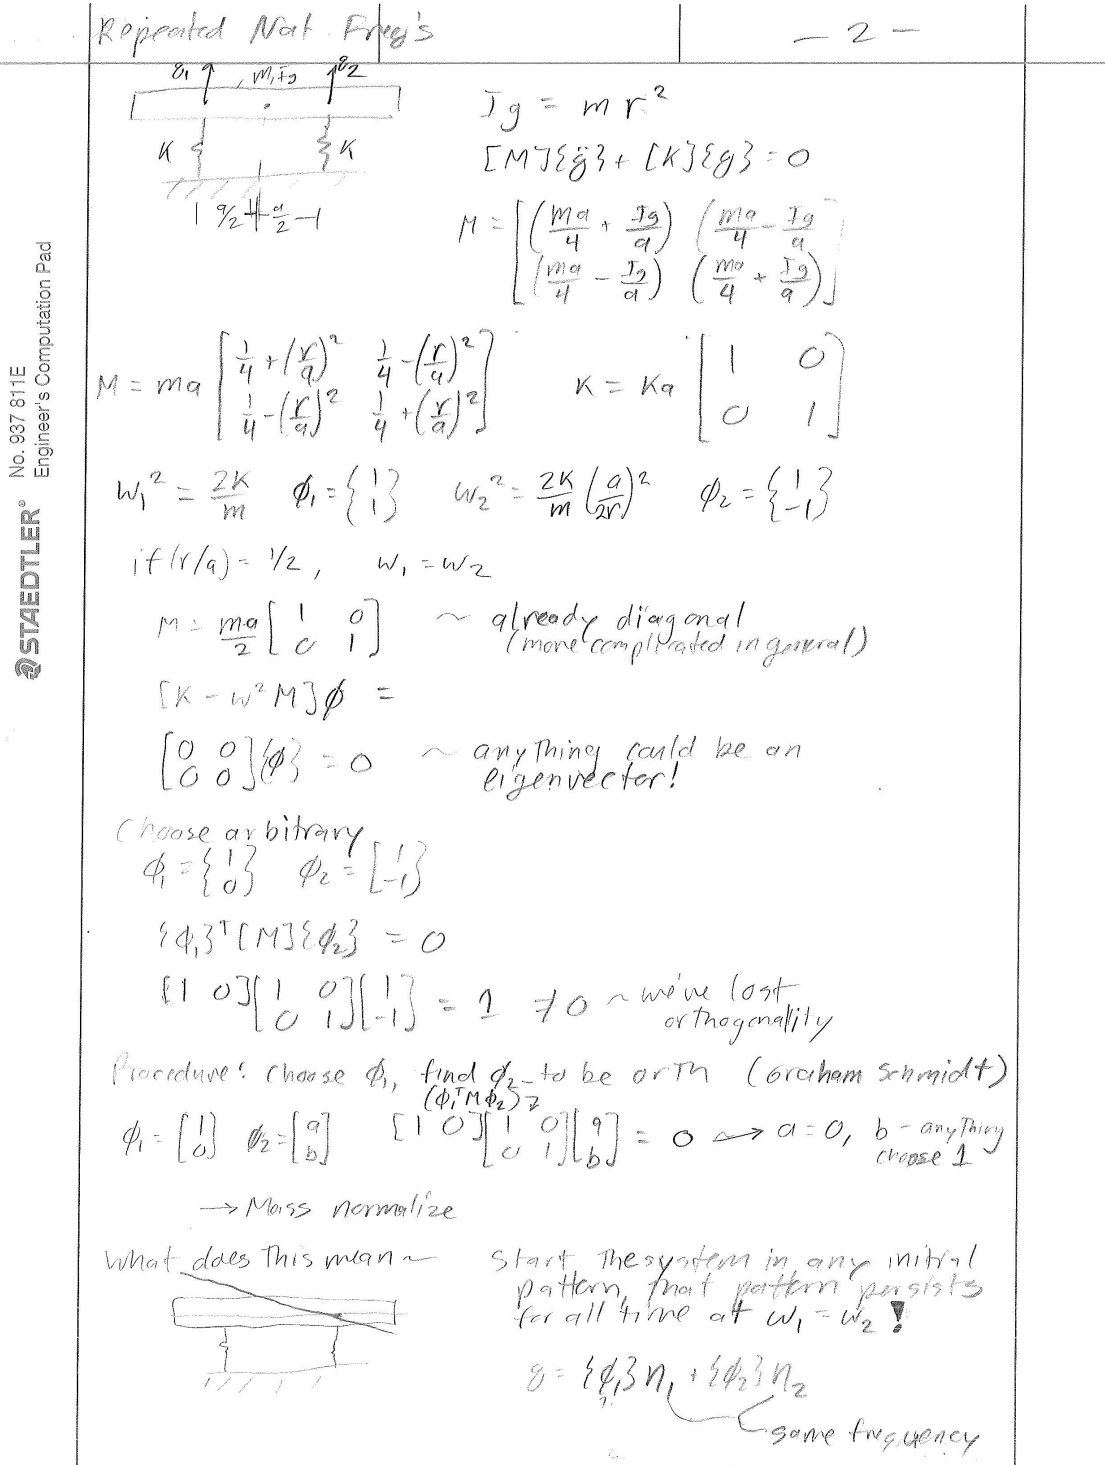 Repeated Nat. Freq's
- 2 -
q₁ m, I_g q₂
K K
a/2 a/2
I_g = m r²
[M]{q̈} + [K]{q} = 0
M = [(ma/4 + I_g/a) (ma/4 - I_g/a)
(ma/4 - I_g/a) (ma/4 + I_g/a)]
M = ma [1/4 + (r/a)² 1/4 - (r/a)²
1/4 - (r/a)² 1/4 + (r/a)²]
K = Ka [1 0
0 1]
ω₁² = 2K/m ϕ₁ = {1 1} ω₂² = 2K/m (a/2r)² ϕ₂ = {1 -1}
if (r/a) = 1/2, ω₁ = ω₂
M = ma/2 [1 0
0 1] ~ already diagonal
(more complicated in general)
[K - ω² M]ϕ =
[0 0
0 0]{ϕ} = 0 ~ anything could be an
eigenvector!
Choose arbitrary
ϕ₁ = {1 0} ϕ₂ = [1 -1}
{ϕ₁}ᵀ[M]{ϕ₂} = 0
[1 0][1 0
0 1][1 -1} = 1 ≠ 0 ~ we've lost
orthogonality
Procedure: choose ϕ₁, find ϕ₂ to be orth (Graham Schmidt)
(ϕ₁ᵀMϕ₂)
ϕ₁ = [1 0] ϕ₂ = [a b] [1 0][1 0
0 1][a b] = 0 → a = 0, b - anything
choose 1
→ Mass normalize
What does this mean ~
Start the system in any initial
pattern, that pattern persists
for all time at ω₁ = ω₂!
q = {ϕ₁}η₁ + {ϕ₂}η₂
same frequency
STAEDTLER® No. 937 811E
Engineer's Computation Pad